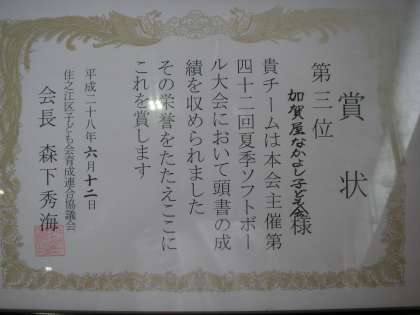 賞状
第三位
加賀屋なかよし子ども会様
貴チームは本会主催第
四十二回夏季ソフトボー
ル大会において頭書の成
績を収められました
その栄誉をたたえここに
これを賞します
平成二十八年六月十二日
住之江区子ども会育成連合協議会
会長 森下秀海